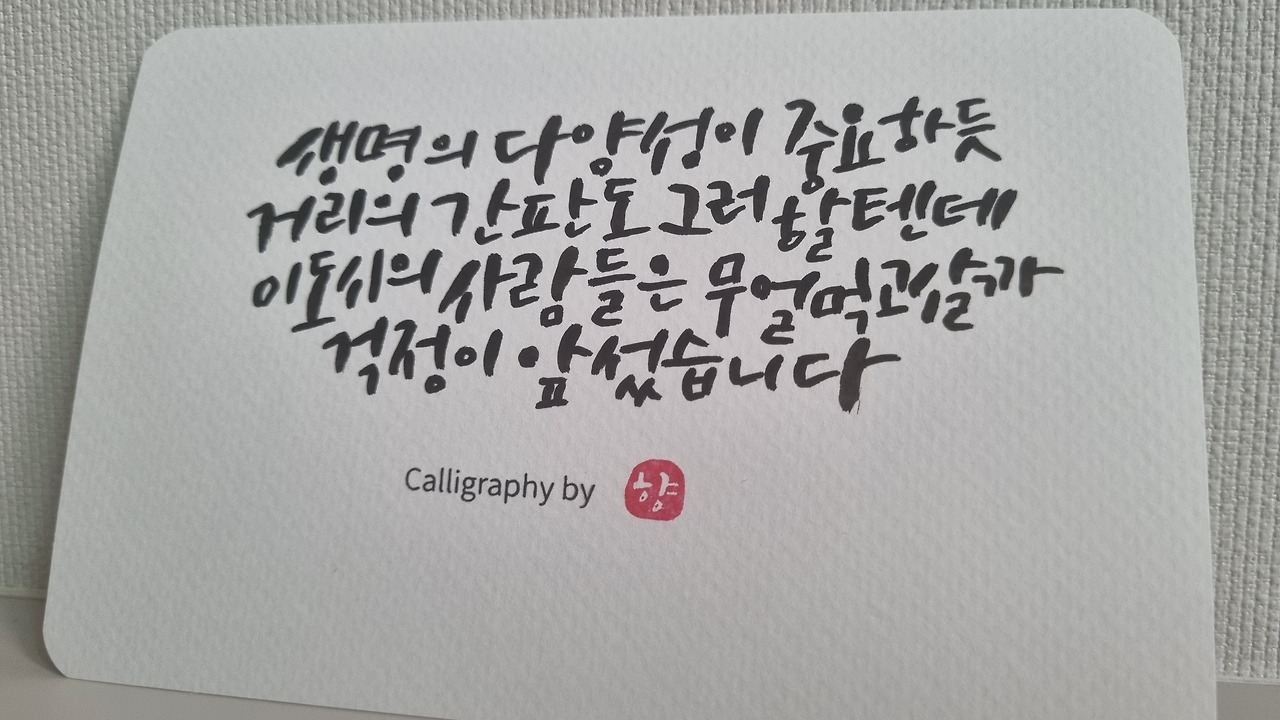 생명의 다양성이 중요하듯
거리의 간판도 그러할텐데
이도시의 사람들은 무얼먹고살까
걱정이 앞섰습니다
Calligraphy by 향